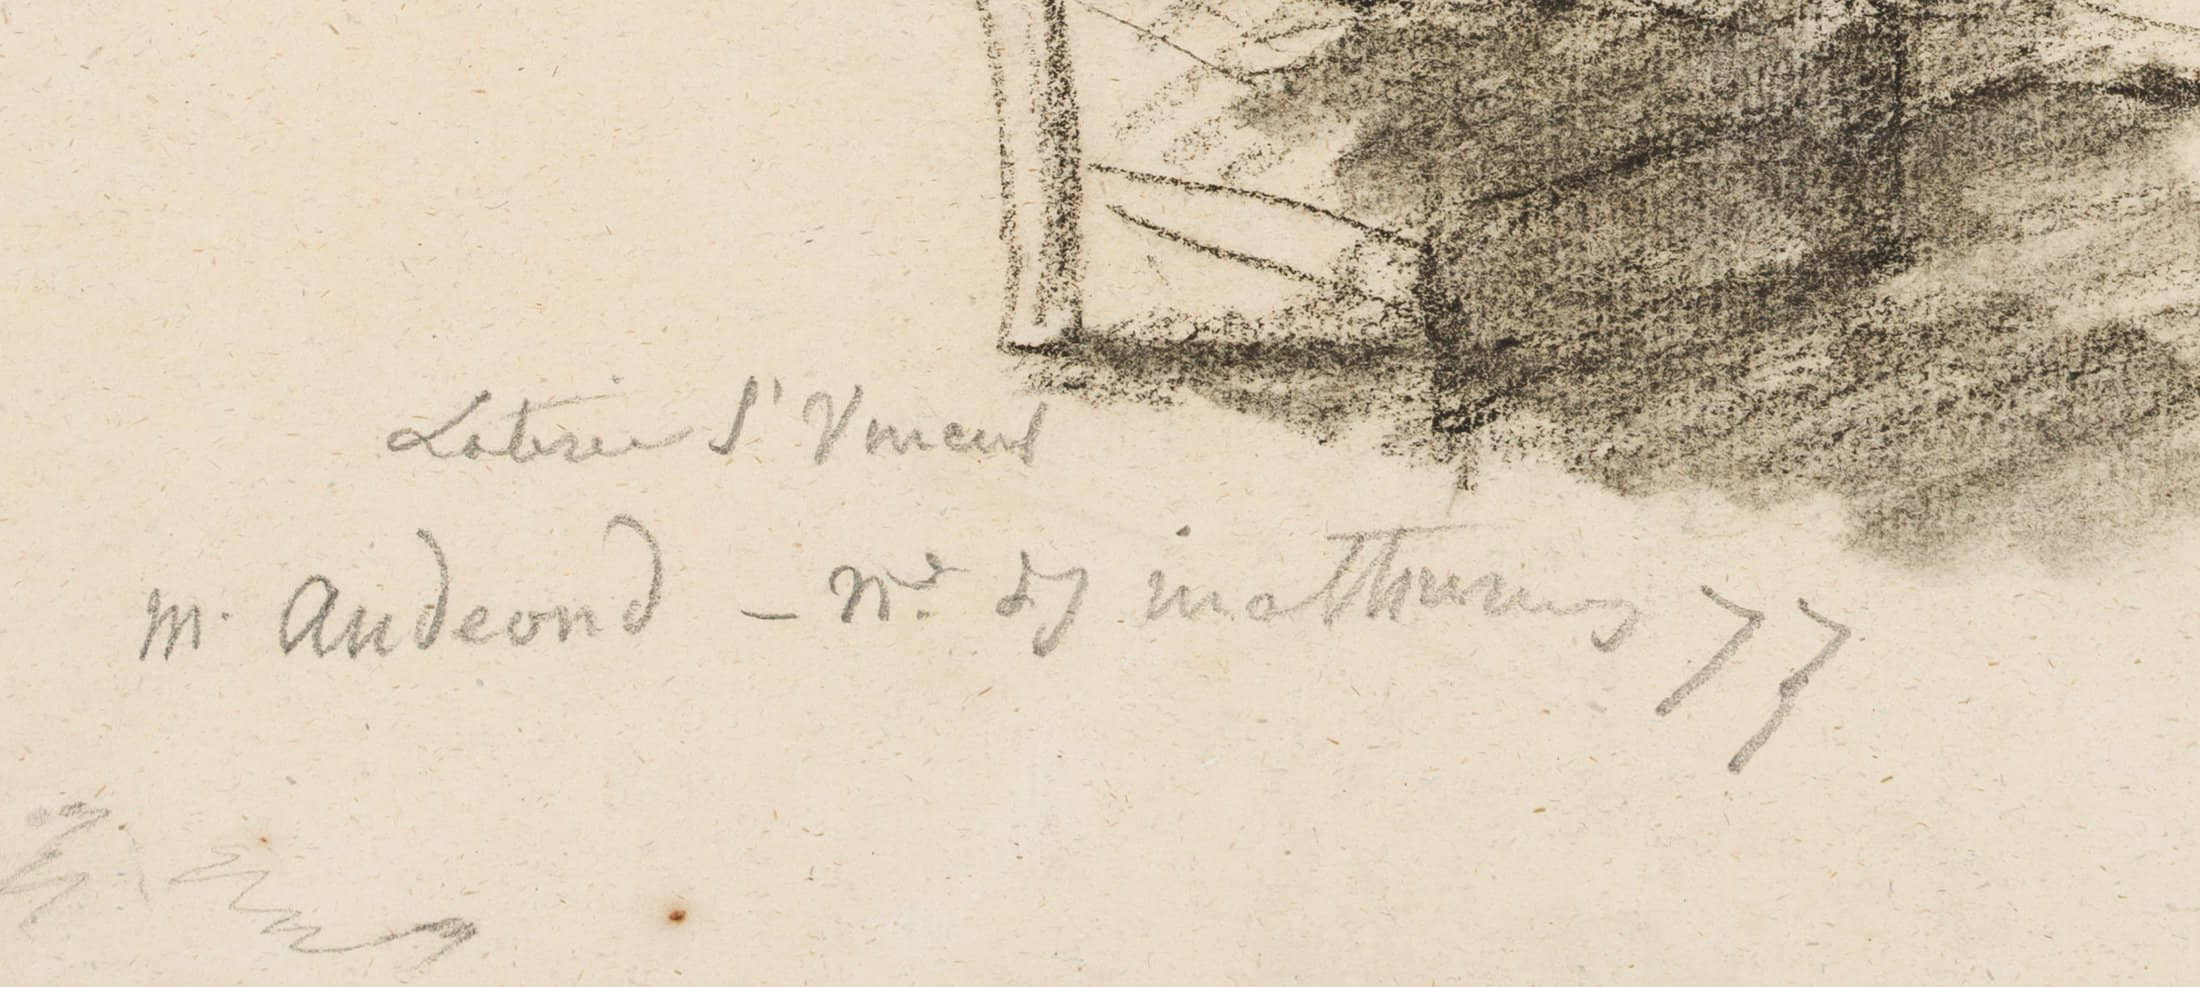 Loterie St Vincent
M. Audeond — Nve des mathurins 77